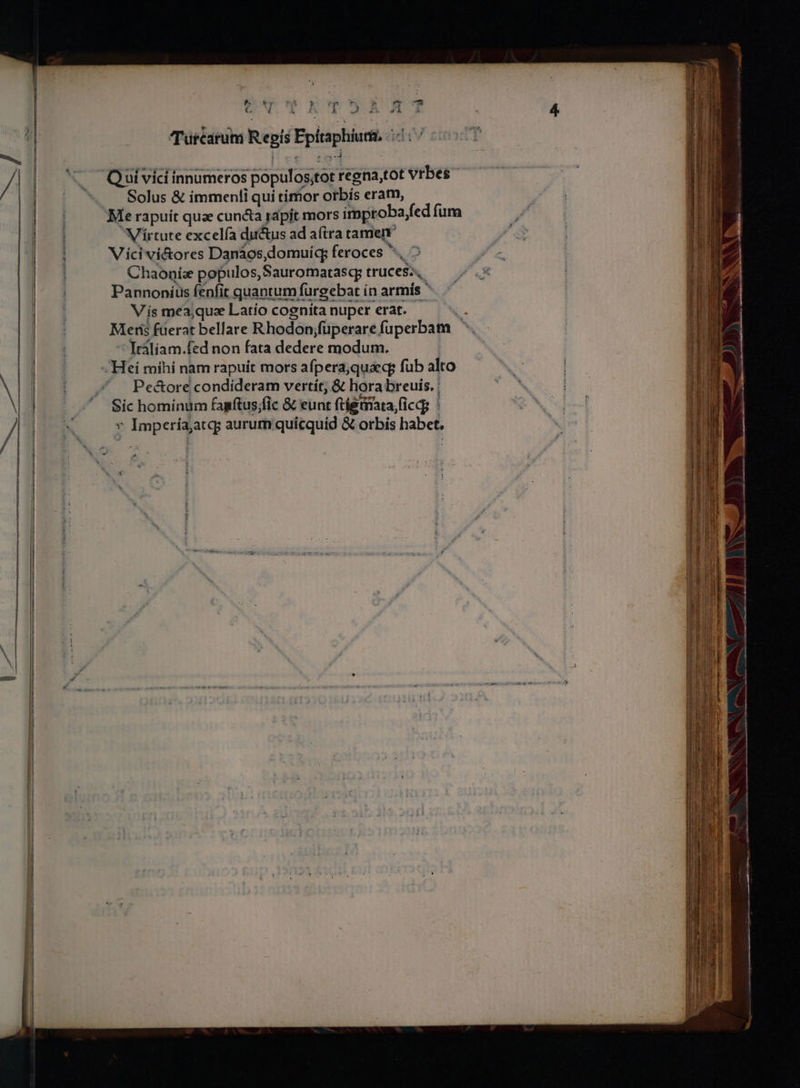 4
Turcarum Regis Epitaphium.
Qui vici innumeros populos,tot regna,tot vrbes
Solus & immensi qui timor orbis eram,
Me rapuit quæ cuncta rapit mors improba,sed sum
Virtute excelsa ductus ad astra tamen
Vici victores Danaos,domuiq; feroces
Chaoniæ populos,Sauromatasq; truces.
Pannonius sensit quantum surgebat in armis
Vis mea,quæ Latio cognita nuper erat.
Mens fuerat bellare Rhodon,superare superbam
Italiam.sed non fata dedere modum.
Hei mihi nam rapuit mors aspera,quæq; sub alto
Pectore condideram vertit, & hora breuis.
Sic hominum fastus,sic & eunt stigmata,sicq;
Imperia,atq; aurum quicquid & orbis habet.